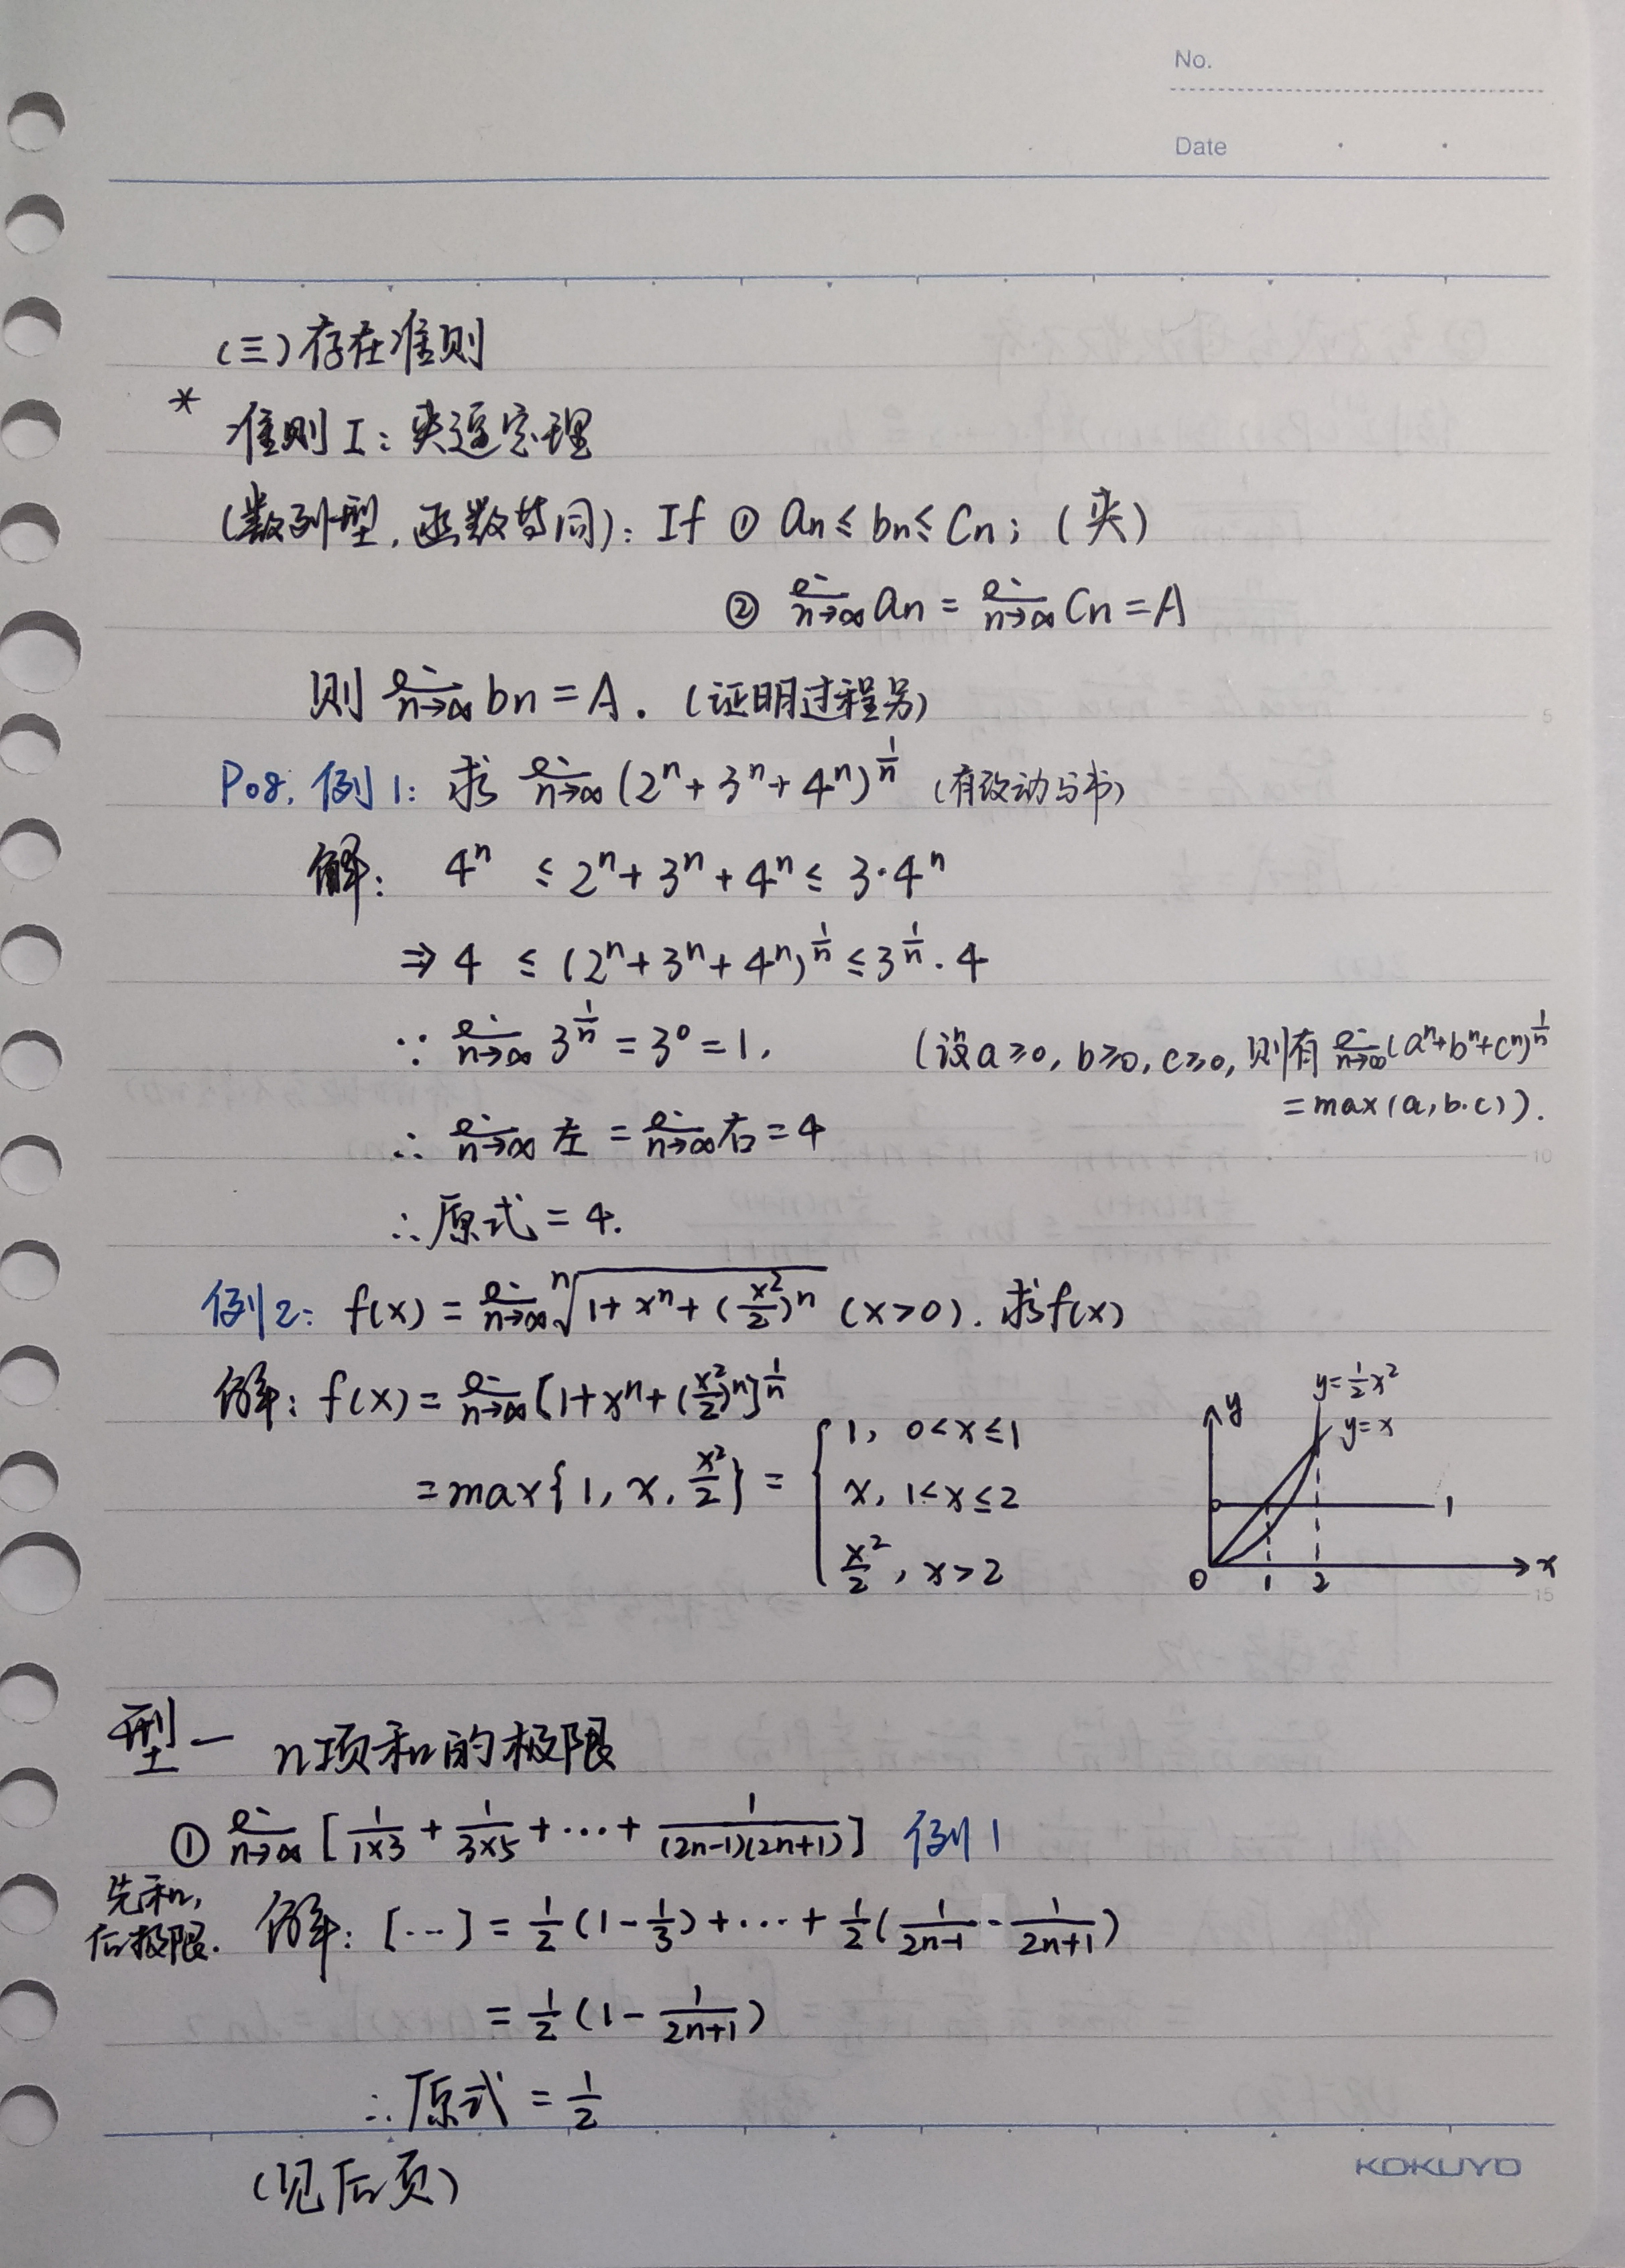 No.
Date
(三)存在准则
* 准则I:夹逼定理
(数列型,函数皆同): If ① an ≤ bn ≤ Cn; (夹)
② lim n→∞ an = lim n→∞ Cn = A
则 lim n→∞ bn = A. (证明过程另)
P08. 例1: 求 lim n→∞ (2ⁿ + 3ⁿ + 4ⁿ)^(1/n) (有改动与书)
解: 4ⁿ ≤ 2ⁿ + 3ⁿ + 4ⁿ ≤ 3·4ⁿ
⇒ 4 ≤ (2ⁿ + 3ⁿ + 4ⁿ)^(1/n) ≤ 3^(1/n) · 4
∵ lim n→∞ 3^(1/n) = 3⁰ = 1.
(设 a≥0, b≥0, c≥0, 则有 lim n→∞ (aⁿ+bⁿ+cⁿ)^(1/n)
= max(a, b. c)).
∴ lim n→∞ 左 = lim n→∞ 右 = 4
∴ 原式 = 4.
例2: f(x) = lim n→∞ ⁿ√(1 + xⁿ + (x²/2)ⁿ) (x>0). 求f(x)
解: f(x) = lim n→∞ [1 + xⁿ + (x²/2)ⁿ]^(1/n)
= max{1, x, x²/2} = { 1, 0<x≤1
x, 1<x≤2
x²/2, x>2
y=½x²
y=x
y
1
0 1 2 x
型一 n项和的极限
① lim n→∞ [1/(1×3) + 1/(3×5) + ··· + 1/((2n-1)(2n+1))] 例1
先和,
后极限.
解: [···] = ½(1 - 1/3) + ··· + ½(1/(2n-1) - 1/(2n+1))
= ½(1 - 1/(2n+1))
∴ 原式 = ½
(见后页)
KOKUYO
5
10
15